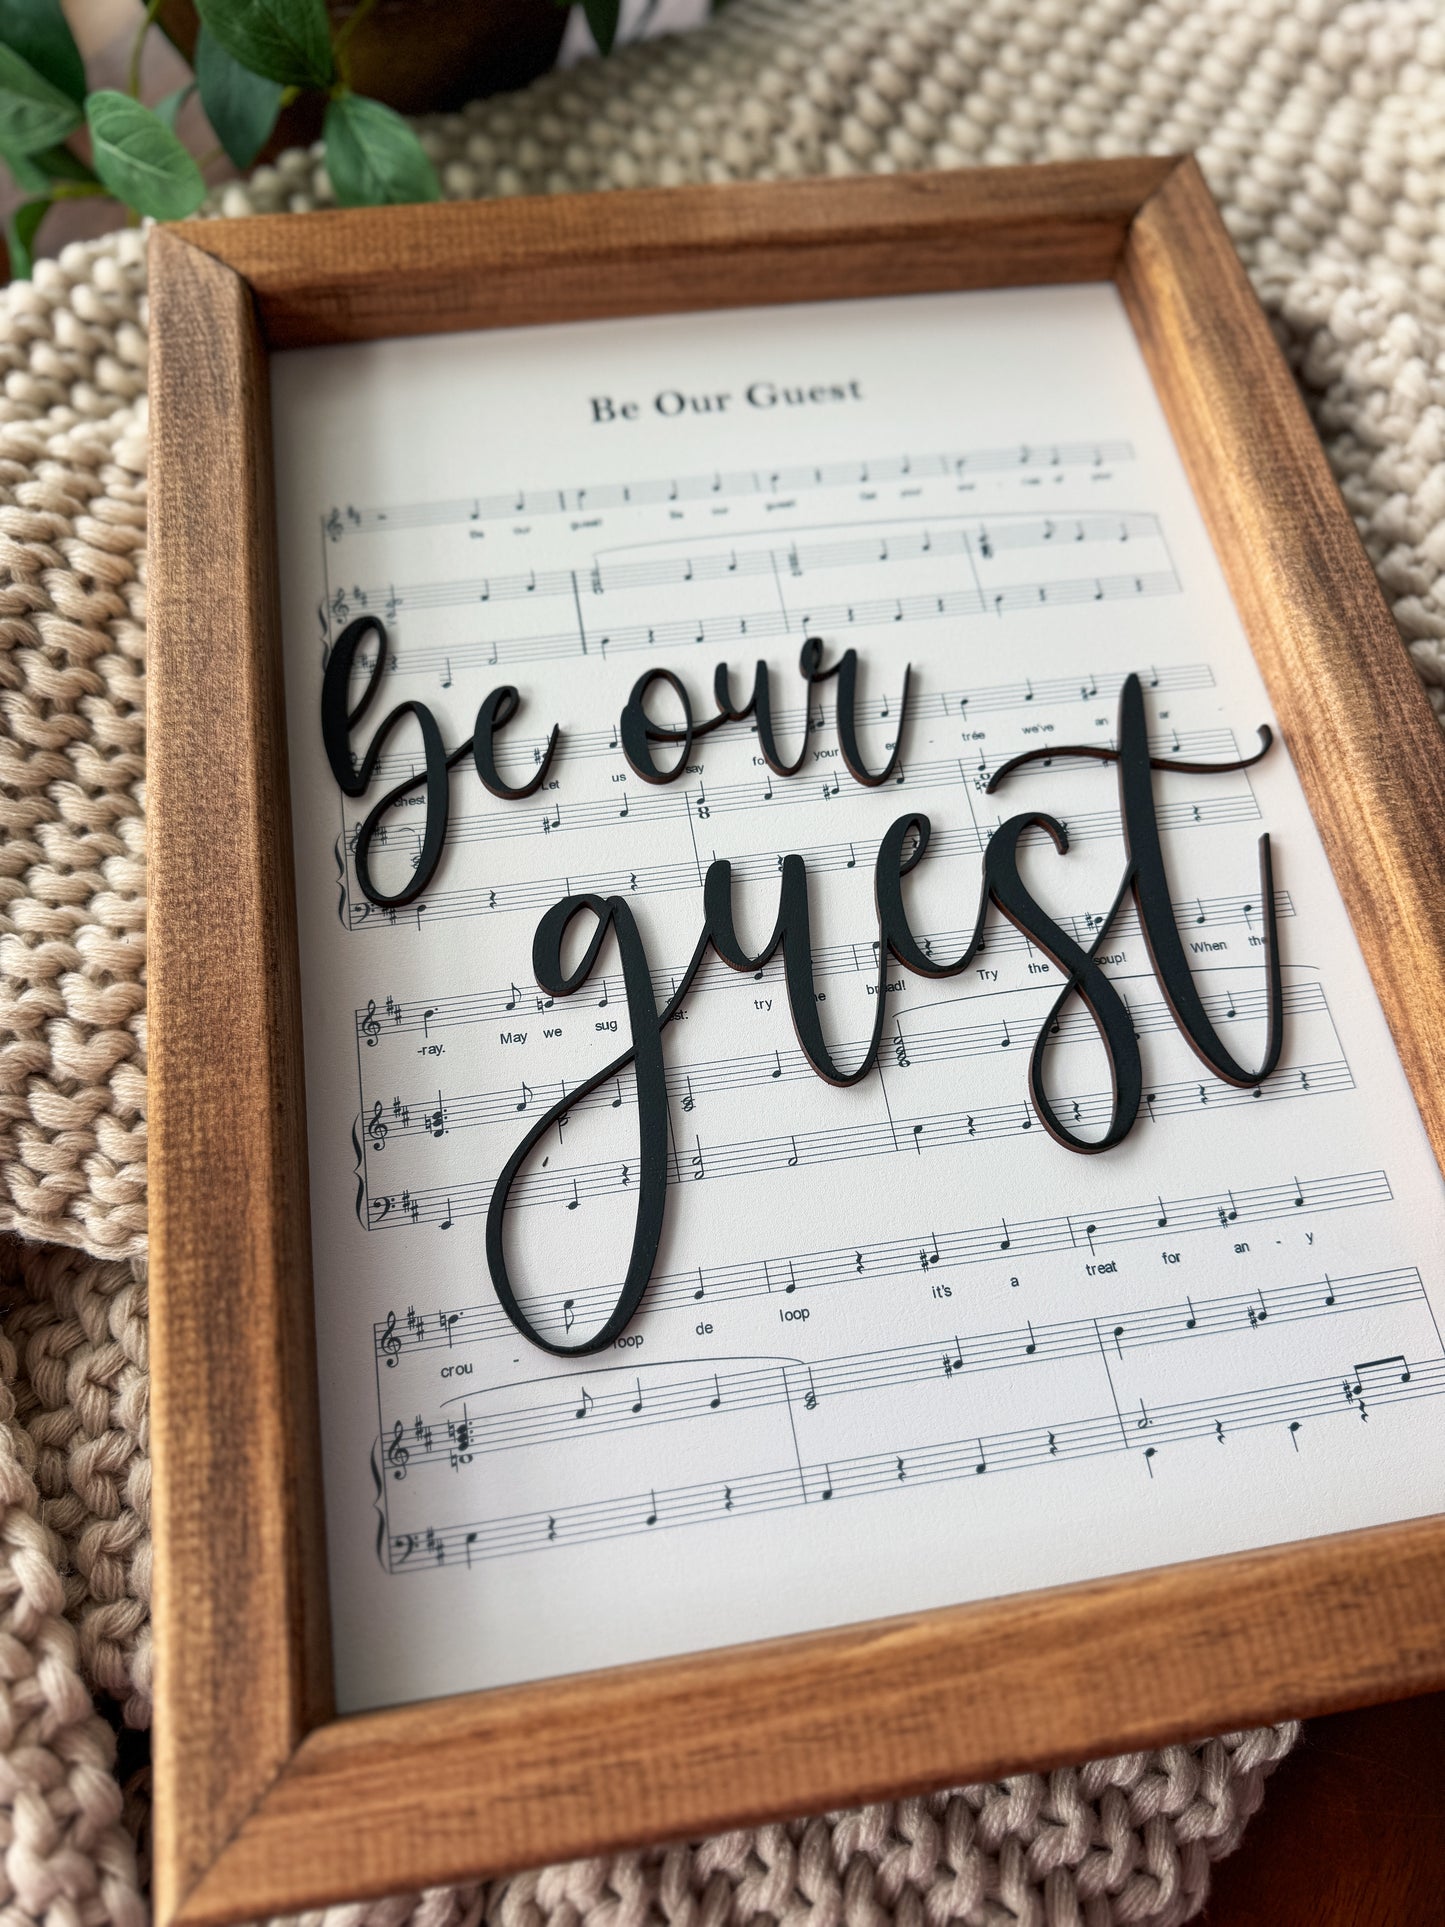 Be Our Guest
Be our guest! Be our guest!
be our
chest Let us say your trée we've an
guest
-ray. May we sug try bread! Try the soup! When the
crou - loop de loop it's a treat for an - y